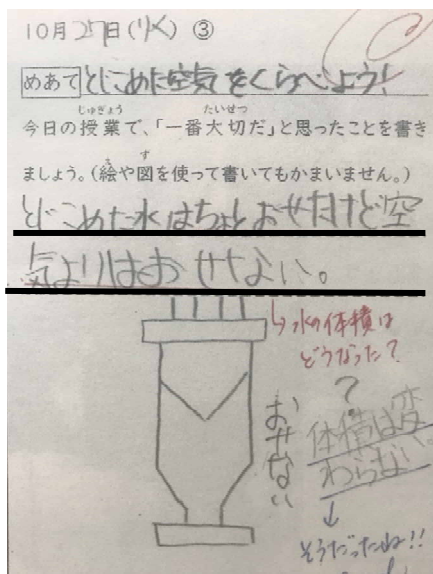 10月27日(りく) ③
めあて とじこめた空気をくらべよう!
今日の授業で、「一番大切だ」と思ったことを書き
ましょう。(絵や図を使って書いてもかまいません。)
とじこめた水はちょとおせたけど空
気よりはおせない。
↳水の体積は
どうなった?
?
おせない
体積は変
わらない。
↓
そうだったね!!